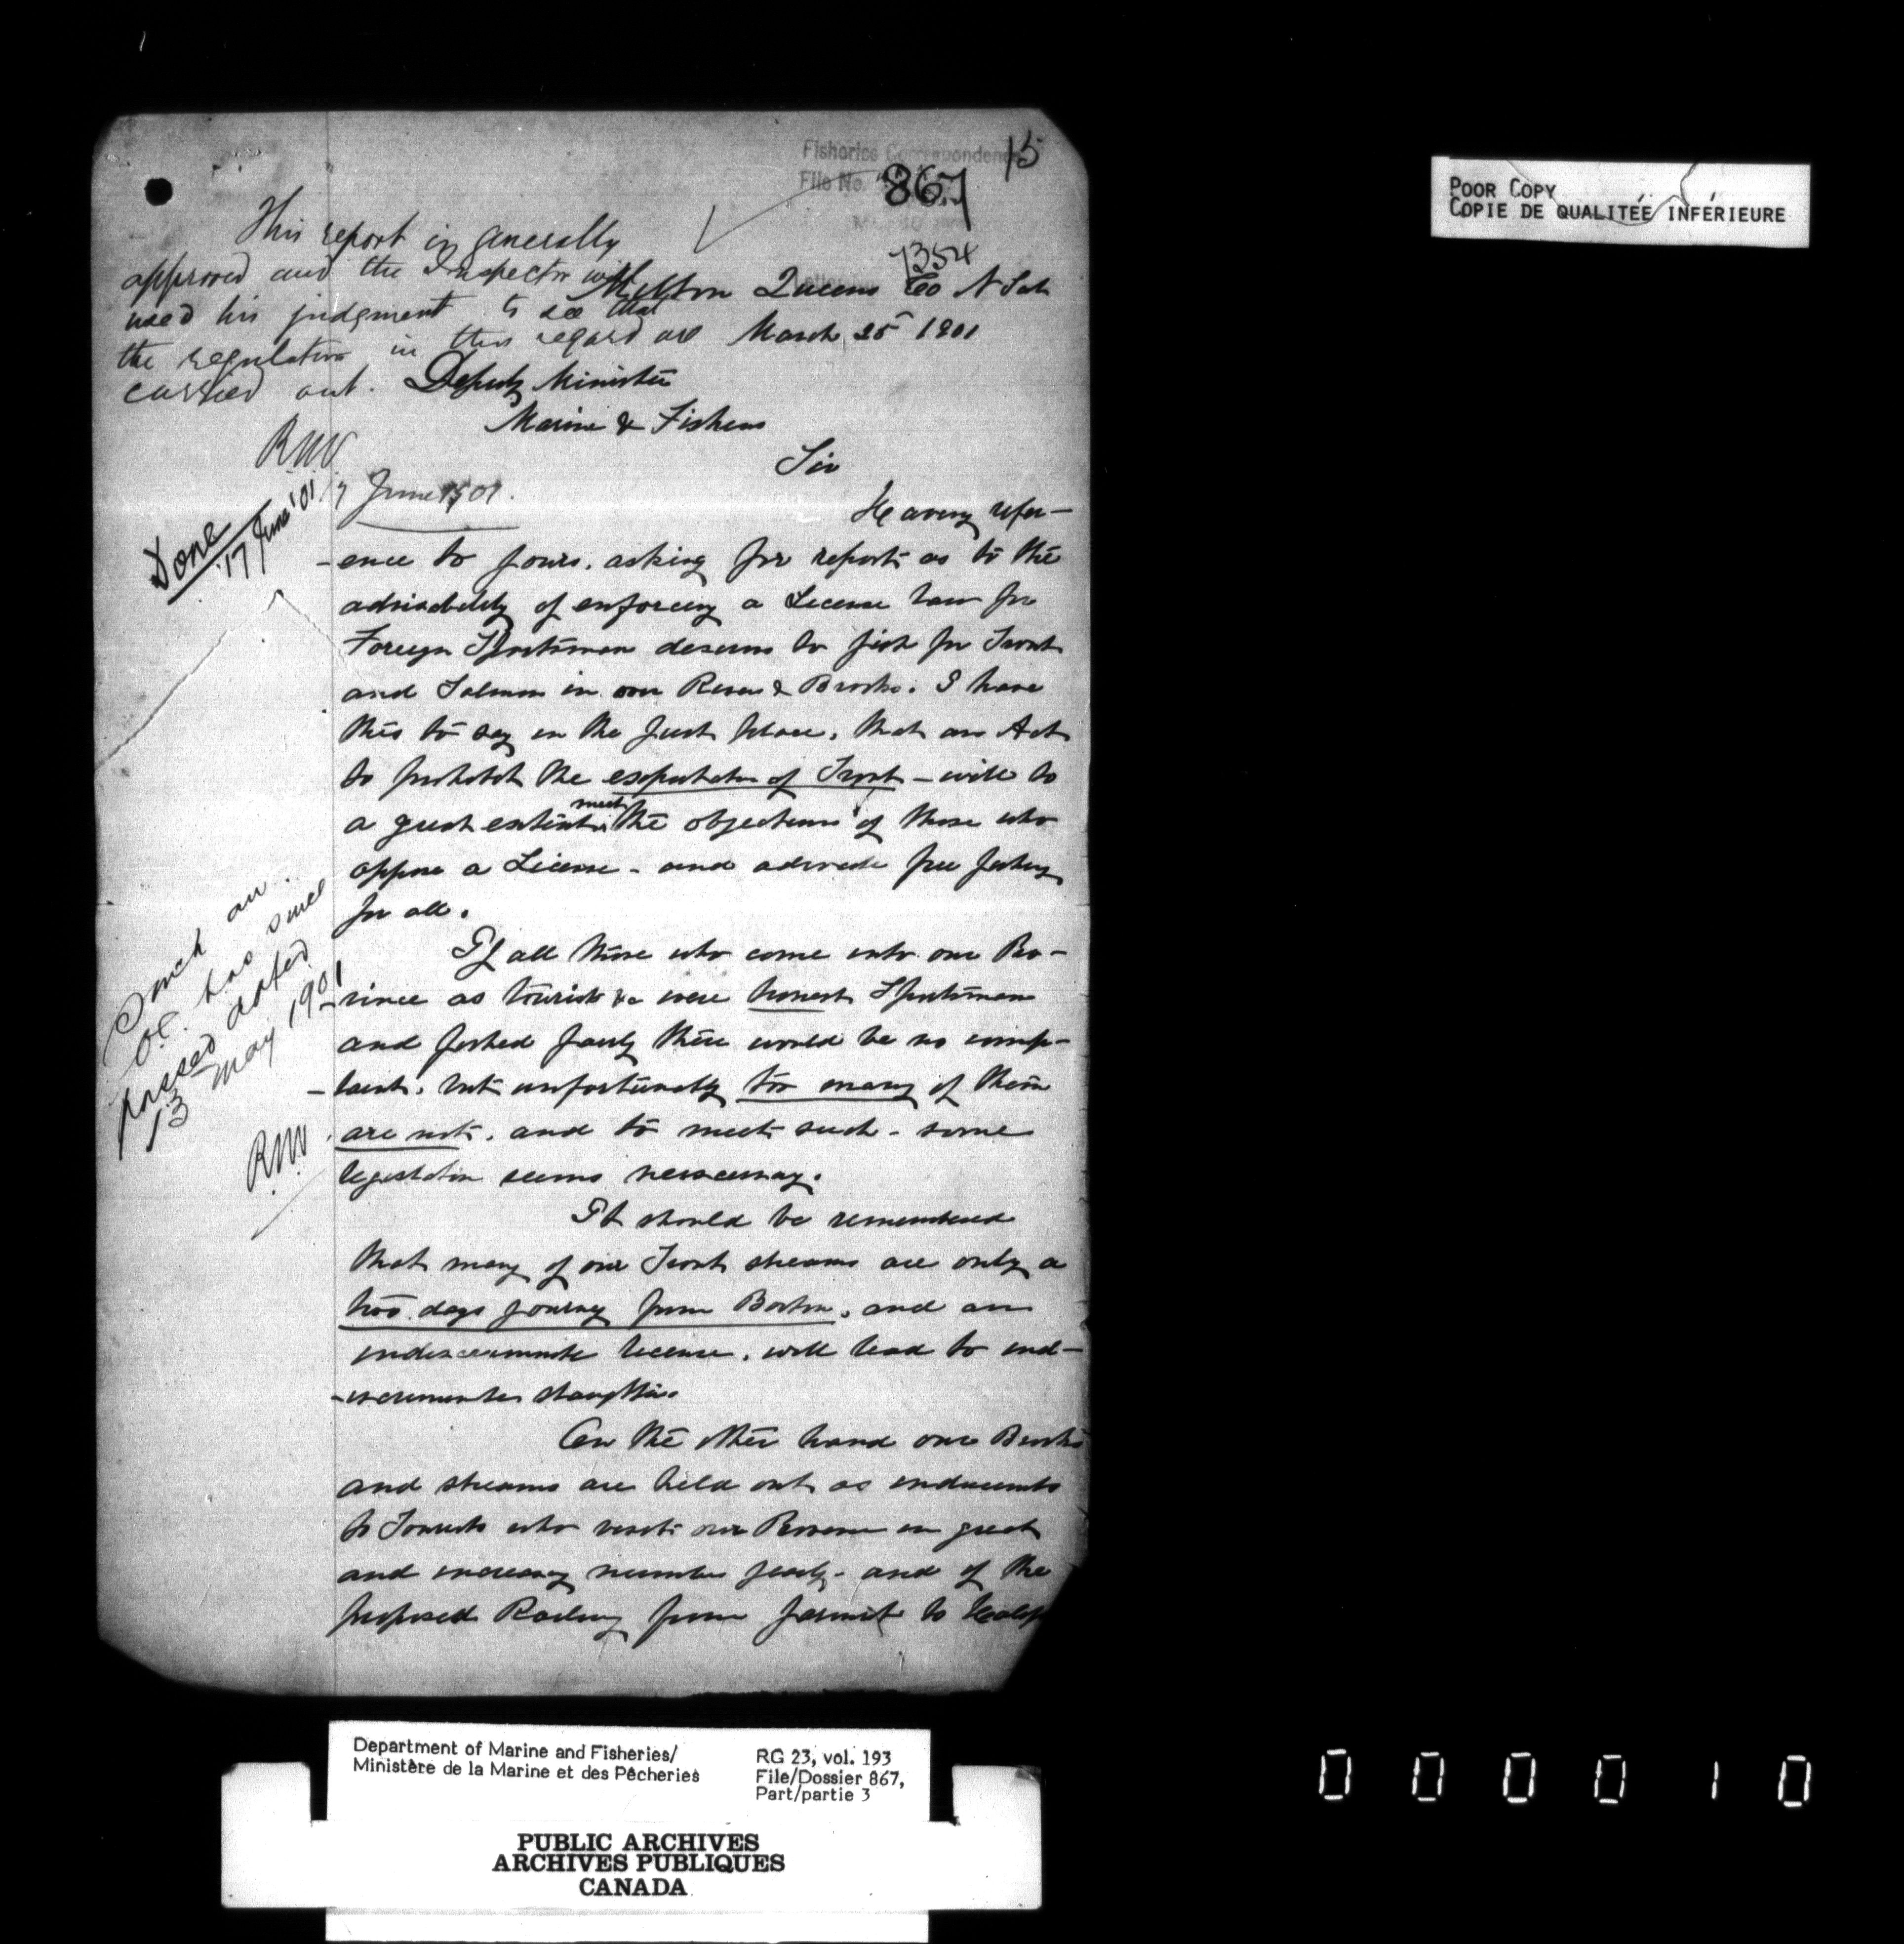 15
Fisheries Correspondence
File No. 867
7354
This report is generally
approved and the Inspector will
used his judgment to see that
the regulations in this regard are
carried out.
RNV
17 June 1901.
Done
17 June '01
Milton Queens Co N Sct
March 25 1901
Deputy Minister
Marine & Fisheries
Sir
Haveing refer-
-ence to yours, asking for report as to the
advisability of enforcing a License law for
Foreign Sportsman desirous to fish for Trout
and Salmon in our Rivers & Brooks. I have
this to say in the first place, that an Act
to prohibit the exportation of Trout - will to
a great extent meet the objections of those who
oppose a License - and advocate free fishing
for all.
Such an
O.C. has since
passed dated
13 May 1901
RNV
If all those who come into our Pro-
-vince as tourists &c were honest Sportsman
and fished fairly there would be no comp-
-laint, but unfortunately too many of them
are not, and to meet such - some
legislation seems nessessary.
It should be remembered
that many of our Trout streams are only a
two days journey from Boston, and an
indiscriminate license, will lead to ind-
-iscriminate slaughter.
On the other hand our Brooks
and streams are held out as inducements
to Tourists who visit our Province in great
and increasing number yearly - and if the
proposed Railway from Yarmouth to Halifx
POOR COPY
COPIE DE QUALITÉE INFÉRIEURE
Department of Marine and Fisheries/
Ministère de la Marine et des Pêcheries
RG 23, vol. 193
File/Dossier 867,
Part/partie 3
PUBLIC ARCHIVES
ARCHIVES PUBLIQUES
CANADA
000010